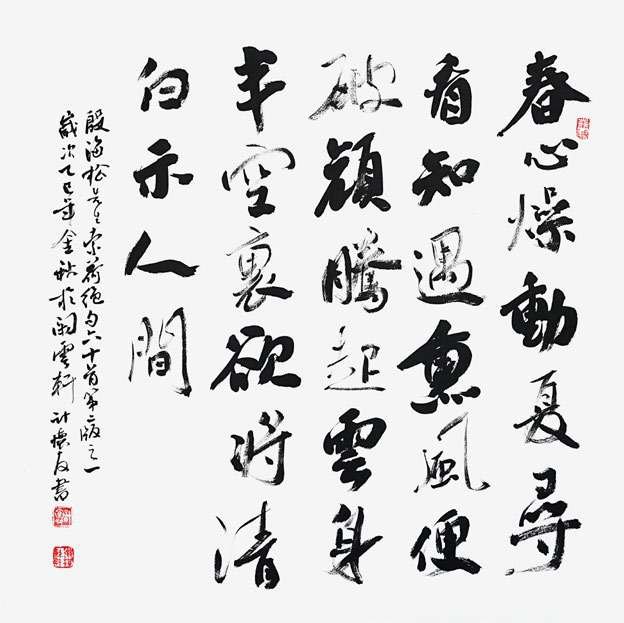 春心燥動夏尋
看知遇熏風便
破顏騰起雲身
半空裏欲將清
白示人間
殷海松先生索荷絕句六十首第二版之一
歲次乙巳年金秋於閑雲軒計懷友書